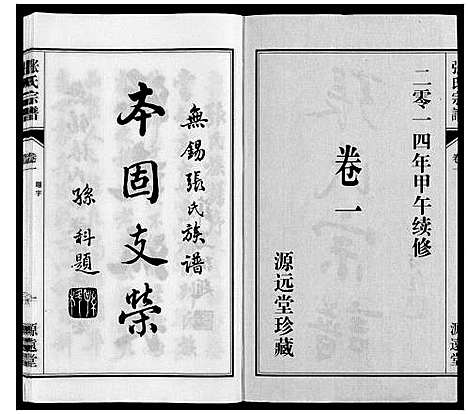 张氏宗谱
卷一
二零一四年甲午续修
卷一
源远堂珍藏
源远堂
無錫張氏族譜
本固支榮
孫科題
張氏宗譜
卷一
題字
源遠堂